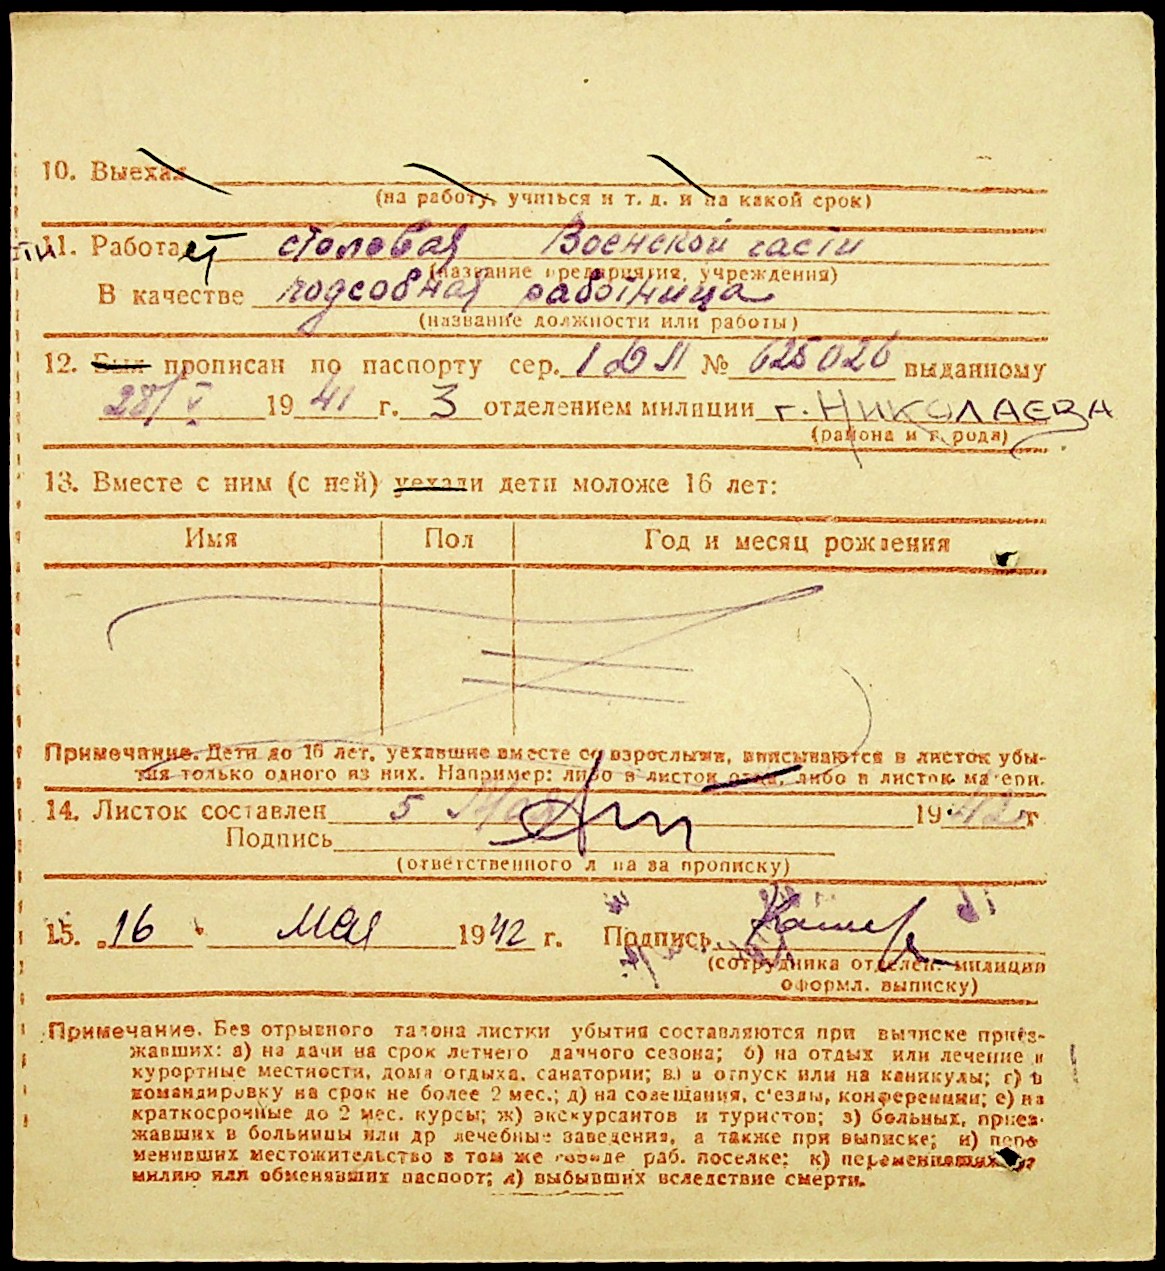 10. Выехал
(на работу, учиться и т. д. и на какой срок)
11. Работает столовая Военской части
(название предприятия, учреждения)
В качестве подсобная работница
(название должности или работы)
12. Был прописан по паспорту сер. № 625026 выданному
28/V 1941 г. 3 отделением милиции г. НИКОЛАЕВА
(района и города)
13. Вместе с ним (с ней) уехали дети моложе 16 лет:
Имя Пол Год и месяц рождения
Примечание. Дети до 16 лет, уехавшие вместе со взрослыми, вписываются в листок убы-
тия только одного из них. Например: либо в листок отца, либо в листок матери.
14. Листок составлен 5 Мая 1942 г
Подпись
(ответственного лица за прописку)
15. 16 мая 1942 г. Подпись
(сотрудника отделен. милиции
оформл. выписку)
Примечание. Без отрывного талона листки убытия составляются при выписке приез-
жавших: а) на дачи на срок летнего дачного сезона; б) на отдых или лечение в
курортные местности, дома отдыха, санатории; в) в отпуск или на каникулы; г) в
командировку на срок не более 2 мес.; д) на совещания, с'езды, конференции; е) на
краткосрочные до 2 мес. курсы; ж) экскурсантов и туристов; з) больных, приез-
жавших в больницы или др лечебные заведения, а также при выписке; и) пере
менивших местожительство в том же городе раб. поселке; к) переменивших фа
милию или обменявших паспорт; л) выбывших вследствие смерти.